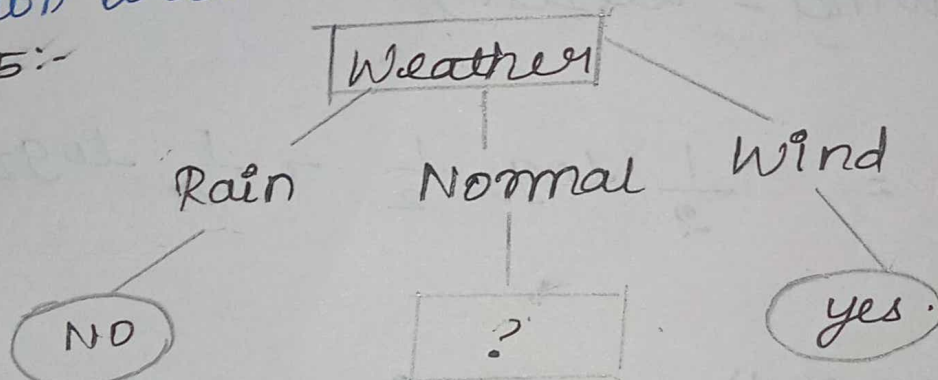 5:-
Weather
Rain Normal Wind
NO ? yes.